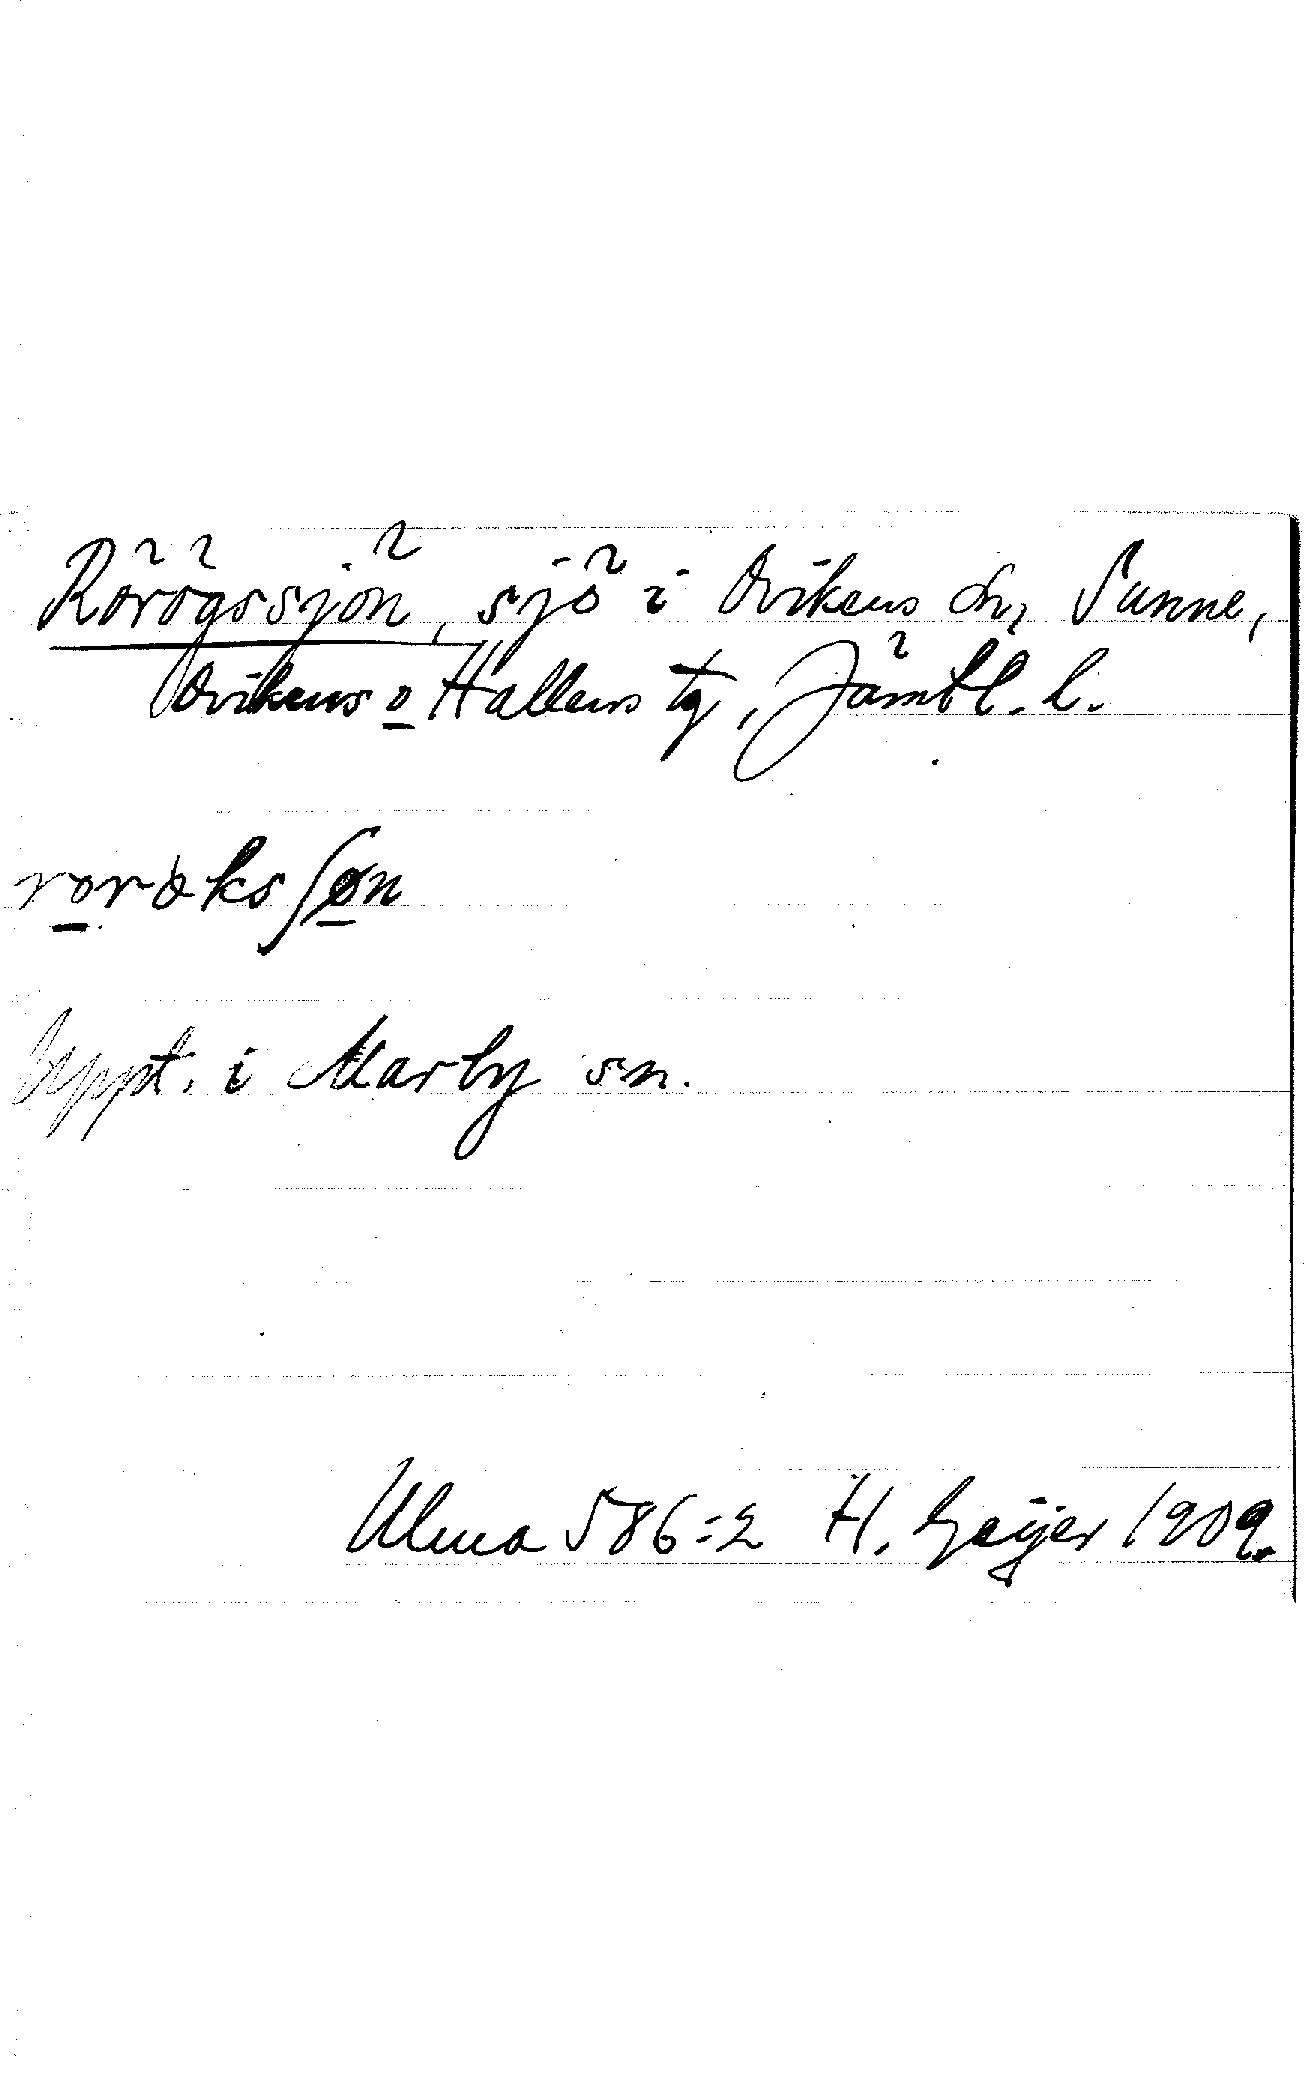 Rörögssjön, sjö i Ovikens sn, Sunne,
Ovikens o Hallens tg, Jämtl. l.
rorøksʃøn
Uppt. i Marby sn.
Ulma 586:2 H. Geijer 1909.